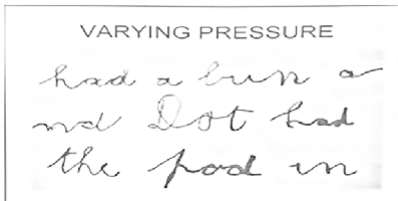 VARYING PRESSURE
had a bun a
nd Dot had
the pod in